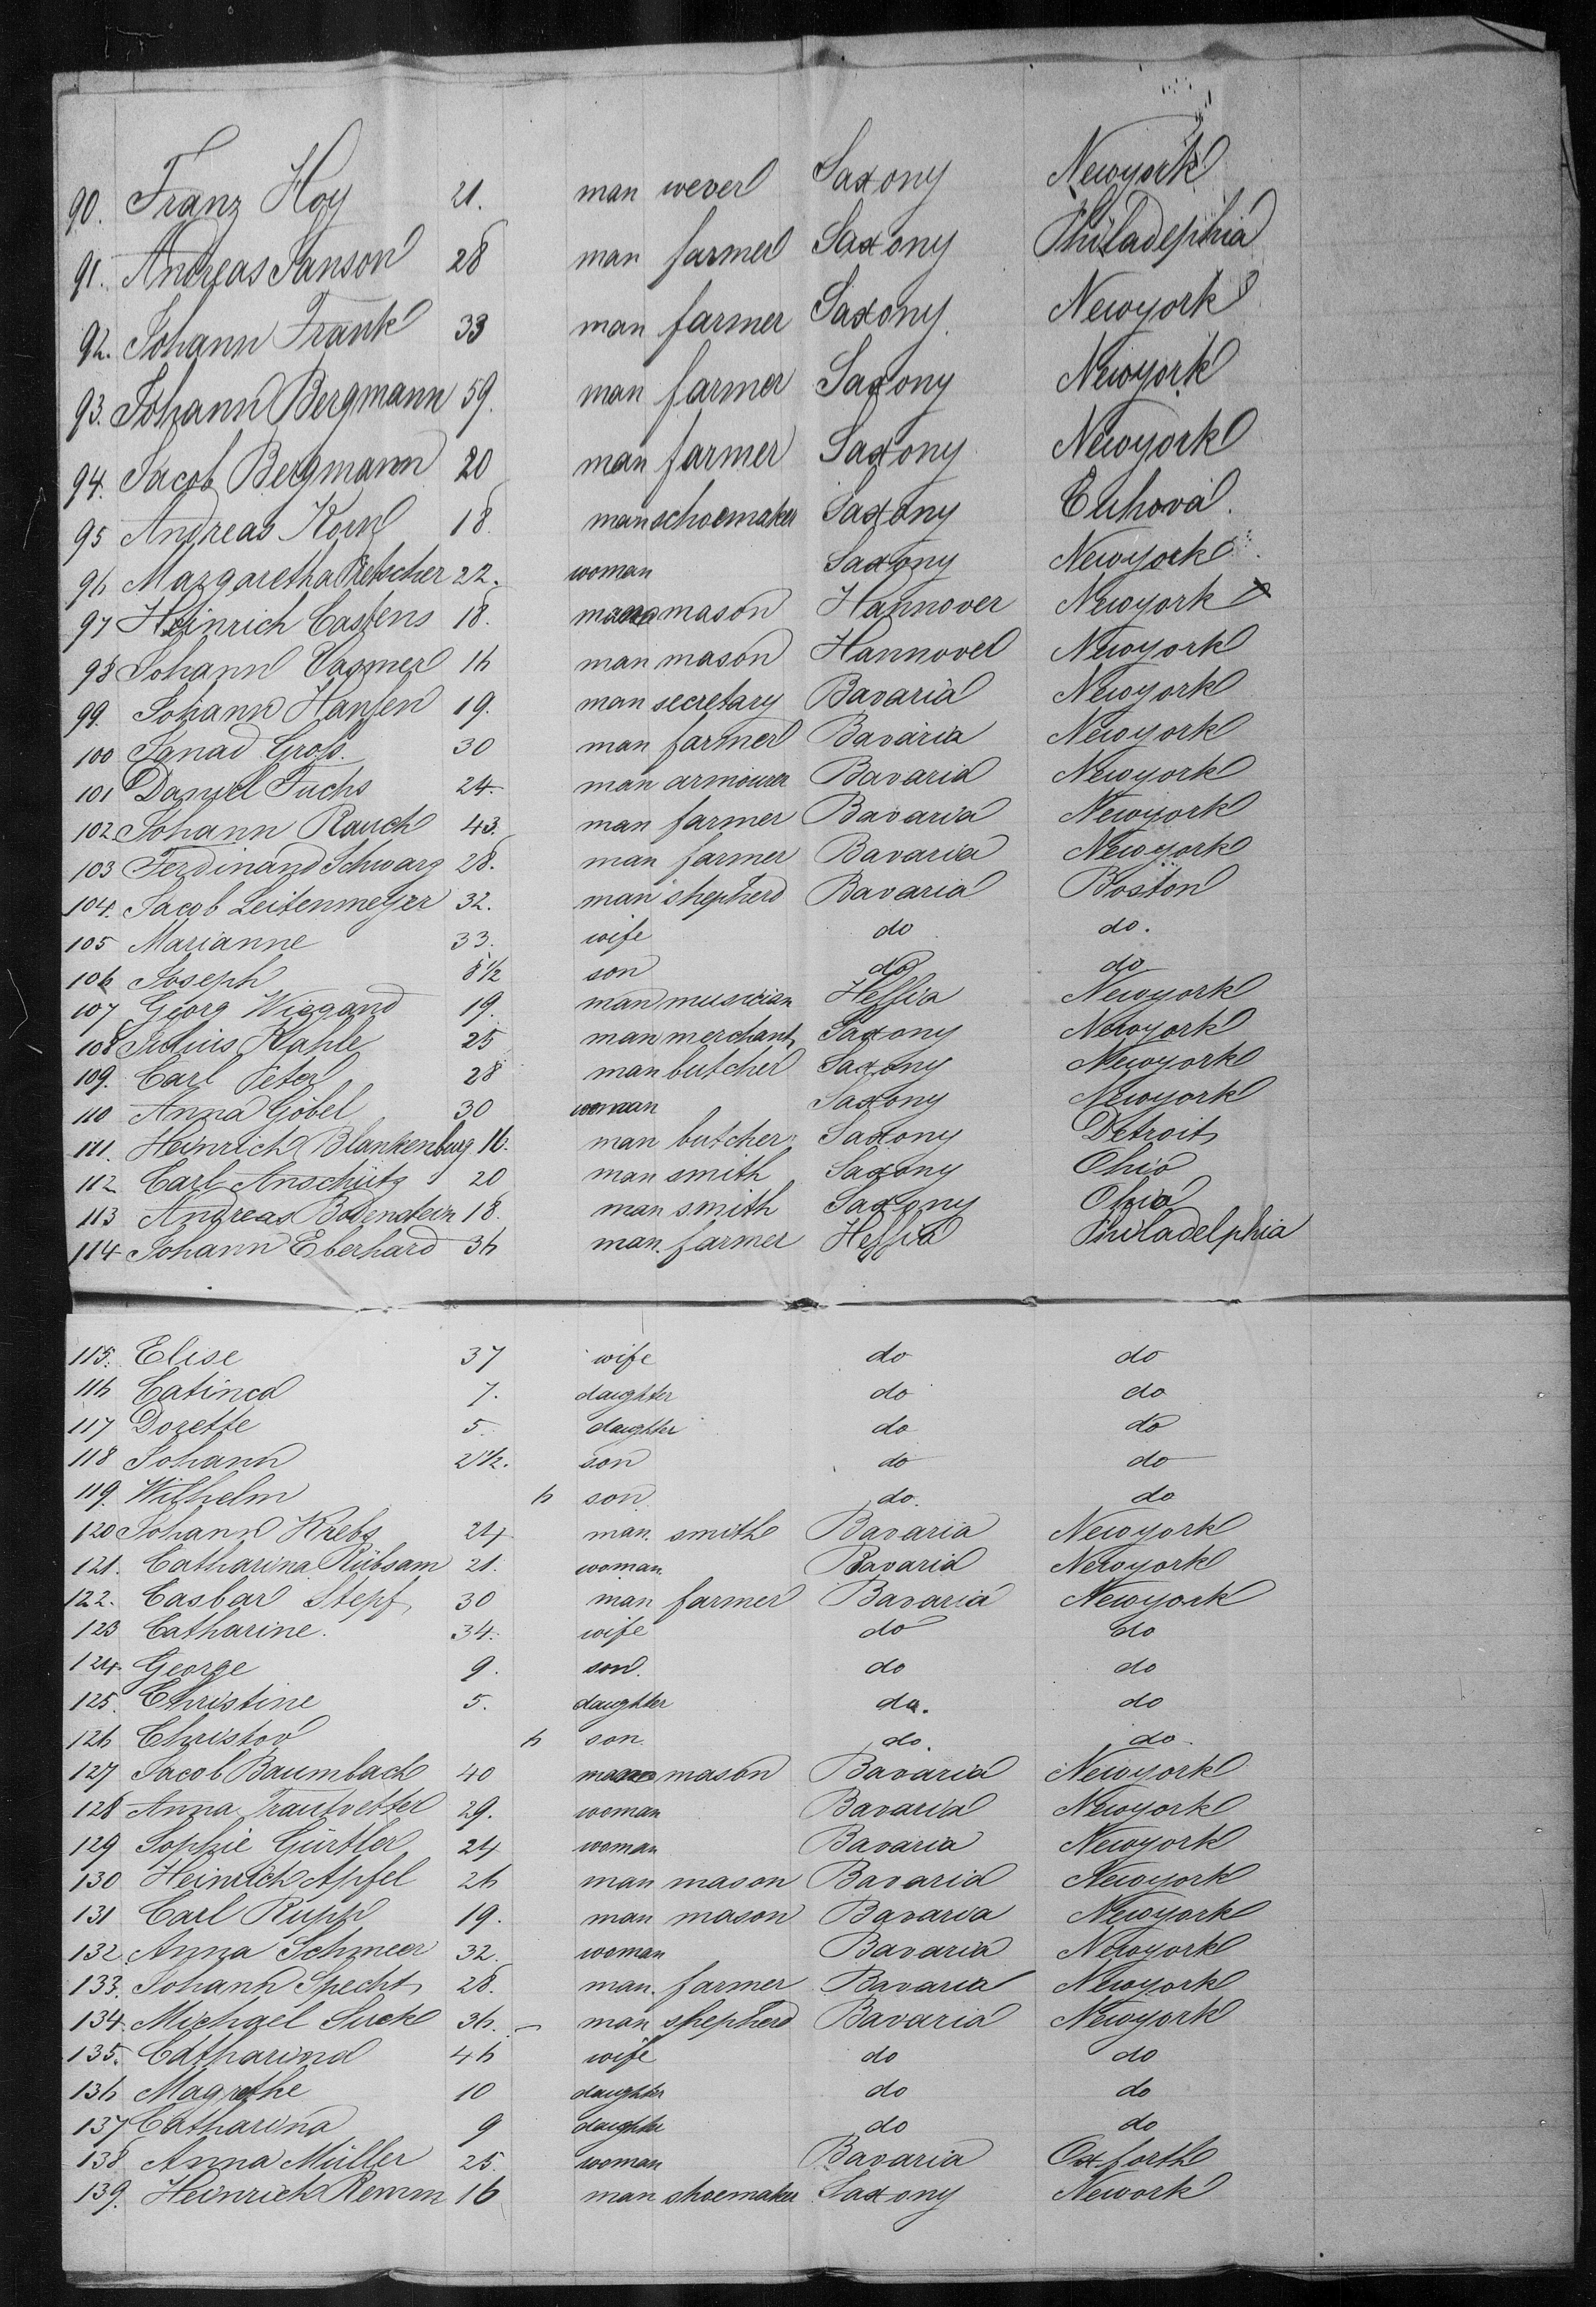 90. Franz Hoy 21. man wever Saxony Newyork
91. Andreas Janson 28 man farmer Saxony Philadephia
92. Johann Frank 33 man farmer Saxony Newyork
93. Johann Bergmann 59. man farmer Saxony Newyork
94. Jacob Bergmann 20 man farmer Saxony Newyork
95 Andreas Korn 18. man schoemaker Saxony
96 Margaretha 22. woman Saxony Newyork
97 Heinrich Castens 18. man mason Hannover Newyork
98 Johann Vasmer 16 man mason Hannover Newyork
99. Johann Hansen 19. man secretary Bavaria Newyork
100 Groß. 30 man farmer Bavaria Newyork
101 Danyel Fuchs 24. man armourer Bavaria Newyork
102 Johann Rauch 43. man farmer Bavaria Newyork
103 Ferdinand Schwarz 28. man farmer Bavaria Newyork
104. Jacob Leitenmeyer 32. man shepherd Bavaria Boston
105 Marianne 33. wife do do.
106 Joseph 8 1/2 son do do
107 Georg Wiegand 19. man musician Hessia Newyork
108 Julius Kahle 25 man merchant Saxony Newyork
109. Carl Peter 28 man butcher Saxony Newyork
110 Anna Göbel 30 woman Saxony Newyork
111. Heinrich Blankenburg 16. man butcher Saxony Detroit
112 Carl Anschütz 20 man smith Saxony Ohio
113 Andreas Bodenstein 18. man smith Saxony Ohio
114 Johann Eberhard 36 man. farmer Hessia Philadelphia
115. Elise 37 wife do do
116 Catinca 7. daughter do do
117 Dorette 5. daughter do do
118 Johann 2 1/2. son do do
119. Wilhelm 6 son. do. do
120 Johann Krebs 24 man. smith Bavaria Newyork
121. Catharina Rübsam 21. woman. Bavaria Newyork
122. Casbar Stepf 30 man farmer Bavaria Newyork
123 Catharine. 34. wife do do
124. George 9. son. do do
125. Christine 5. daughter do. do
126 Christov 6 son. do. do
127 Jacob Baumbach 40 man mason Bavaria Newyork
128 Anna Trautvetter 29. woman Bavaria Newyork
129 Sophie Gürtler 24 woman Bavaria Newyork
130 Heinrich Apfel 26 man mason Bavaria Newyork
131 Carl Rupp 19. man mason Bavaria Newyork
132 Anna Schmeer 32. woman Bavaria Newyork
133. Johann Specht 28. man. farmer Bavaria Newyork
134. Michael Suck 36. man shepherd Bavaria Newyork
135. Catharina 46 wife do do
136 Magrethe 10 daughter do do
137 Catharina 9 daughter do do
138 Anna Müller 25. woman Bavaria Oxforth
139. Heinrich Remm 16 man shoemaker Saxony Nework